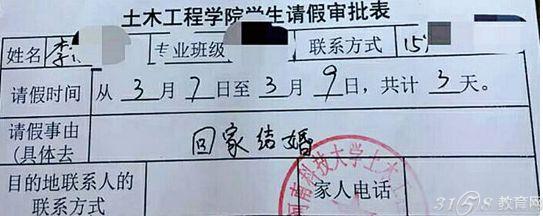 土木工程学院学生请假审批表
姓名 李 专业班级 联系方式 15
请假时间 从 3 月 7 日至 3 月 9 日，共计 3 天。
请假事由 回家结婚
(具体去
目的地联系人的 家人电话
联系方式
河南科技大学土木工
3158教育网